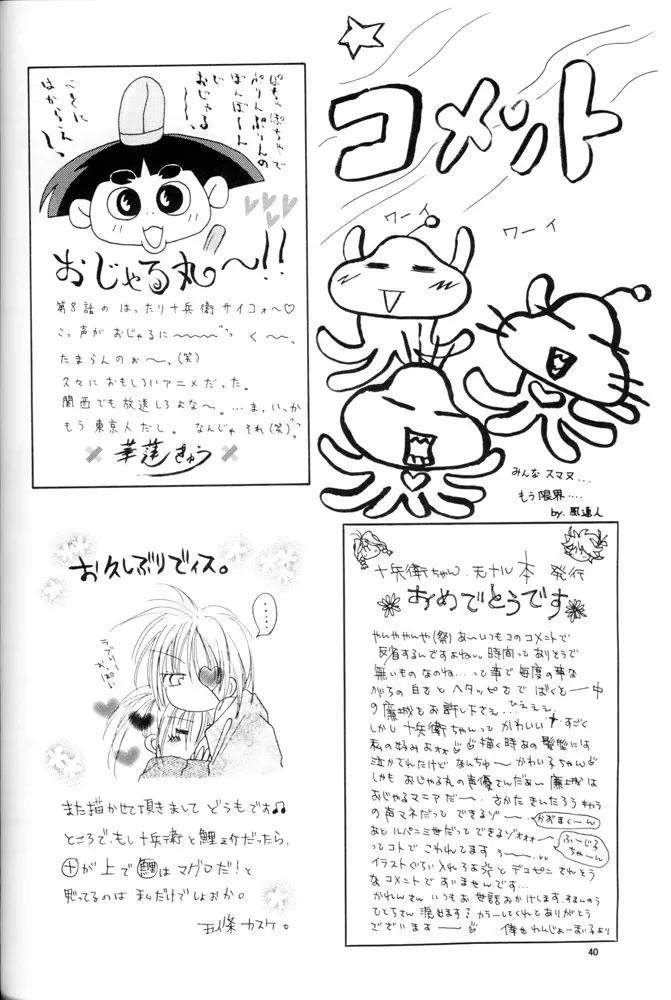 コメント
ワーイ
ワーイ
みんな スマヌ...
もう限界....
by. 風道人
ぽちゃぽちゃで
ぷりんぷりんの
ぼんぼーん
じ、
おじゃる、
うまに
はからえ〜、
おじゃる丸〜!!
第8話の はったり十兵衛サイコォ〜♡
こっ声が おじゃるに〜〜〜 く〜〜、
たまらんのぉ〜〜、(笑)
久々に おもしろいアニメだった。
関西でも放送しろよな〜。...ま、いっか
もう 東京人だし。 なんじゃ それ(笑)
華蓮きゅう
お久しぶりでイス。
....
ラブリー
っぽい
また描かせて頂きまして どうもです♫
ところで、もし十兵衛と鯉ノ助だったら、
十が上で鯉はマグロだ!と
思ってるのは 私だけでしょおか。
五條 カスケ。
十兵衛ちゃん. モナル本 発行
おめでとうです
やんややんや(祭) あ〜いつもコのコメントで
反省するんですよねぃ。時間ってありそうで
無いものなのね...って事で毎度の事な
がらの 白さと ヘタッピさで ばくと一中
の 廉城をお許し下さえ... ひえぇぇ
しかし 十兵衛ちゃんって かわいい すごく
私の好みよォォ 描く時あの髪型には
泣かされたけど なんちゅ〜 かわい子ちゃん
しかも おじゃる丸の声優さんだぁ〜 廉城は
おじゃるマニアだ〜. さかた きんたろう きゅう
の声マネだって できるゾ〜
かおまくーん
あと ルパン三世だって できるゾォォォ
ふーじこちゃーん
ってコトで こわれてます ぅ〜〜.
イラストぐらい入れろよ と デコピン されそう
な コメントで すいませんです...
かれんさん いつもお世話おかけします.
ひとちさん 混ぜます? カラーしてくれてありがとう
ございます〜
偉せ れんじょーまい子より
40